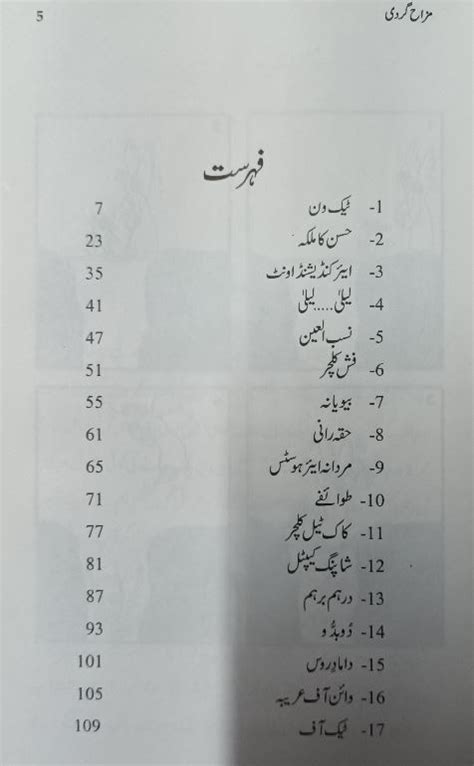 مزاح گردی 5
فہرست
1- ٹیک ون 7
2- حسن کا ملکہ 23
3- ایئر کنڈیشنڈ اونٹ 35
4- لیلیٰ.....لیلیٰ 41
5- نسب العین 47
6- فش کلچر 51
7- بیویانہ 55
8- حقہ رانی 61
9- مردانہ ایئر ہوسٹس 65
10- طوائفے 71
11- کاک ٹیل کلچر 77
12- شاپنگ کیپٹل 81
13- درہم برہم 87
14- دُوبدُو 93
15- دامادِ روس 101
16- وائن آف عریبہ 105
17- ٹیک آف 109